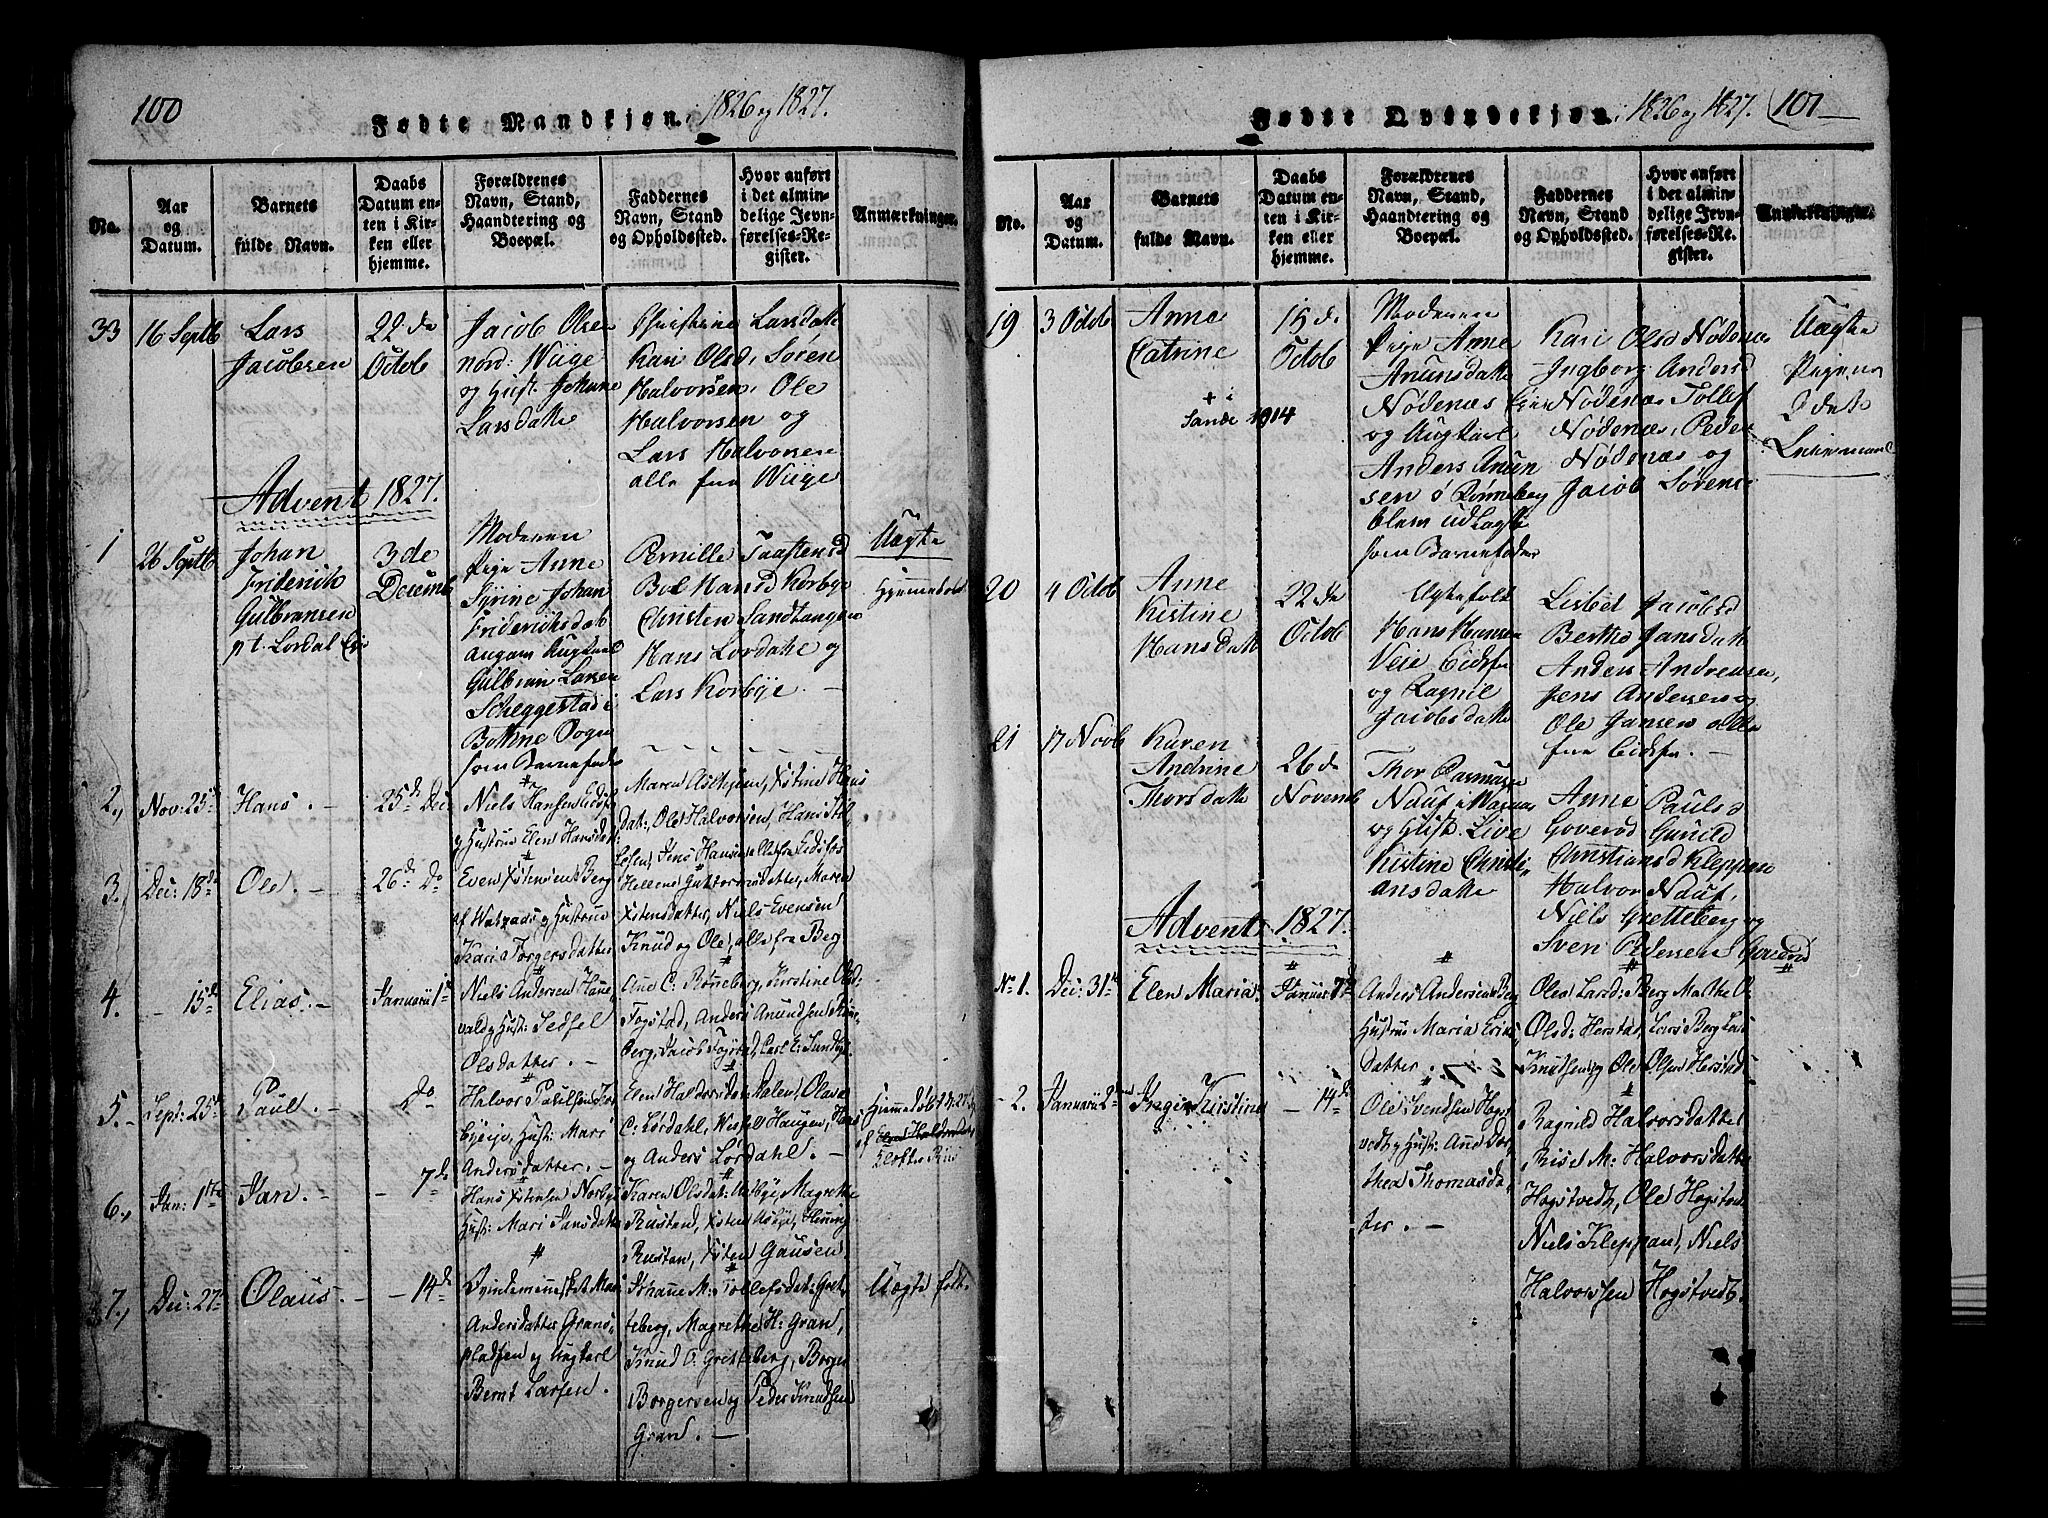 100
Fødte Mandkjøn. 1826 og 1827.
No.
Aar og Datum.
Barnets fulde Navn.
Daabs Datum enten i Kirken eller hjemme.
Forældrenes Navn, Stand, Haandtering og Boepæl.
Faddernes Navn, Stand og Opholdssted.
Hvor anført i det almindelige Jevnførelses-Register.
Anmærkninger.
33
16 Septb
Lars
Jacobsen
22 de
Octob
Jacob Olsen
nord: Wiige
og Hust. Johane
Larsdatte
Christine Larsdatte
Kari Olsd, Søren
Halvorsen, Ole
Halvorsen og
Lars Halvorsen
alle fra Wiige
Advent 1827.
1
26 Septb
Johan
Friderich
Gulbransen
pt. Lørdal Eie
3 de
Decemb
Moderen
Pige Anne
Sÿrine Johan
Friderichsdat
angav Ungkarl
Gulbran Larsen
Scheggestad i
Bottne Sogn
som Barnefader
Pernille Taastensd
Boel Hansd Korbÿe
Christen Sandtangen
Hans Lørdahl og
Lars Korbÿe. –
Uægte
Hjemmedøbt
2.,
Nov: 25de
Hans. –
25de Dec:
Niels Hansen Eidsf
og Hustrue Elen Hansdat:
Maren Askjem, Xstine Hans
dat:, Ole Halvorsen, Hans
Jens Hansen alle fra Eidsfos
3.,
Dec: 18de
Ole. –
26de Do
Even Xstensen Berg
og Hustrue
Kari Torgersdatter
Hellene Guttormsdatter, Maren
Xstensdatter, Niels Evensen
Knud og Ole, alle fra Berg
4.
– 15de
Elias. –
Januarii 1te
Niels Andersen Haue
vald og Hust: Sedsel
Olsdatter. –
Ane C: Rønneberg, Kirstine Olsd
Togstad, Anders Amundsen Rønne
berg, Jacob Togstad, Carl E: Sundbÿe
5. –
Sept: 25de
Paul. –
– do
Halvor Paulsen
Hust: Mari
Andersdatter. –
Elen Halvorsdat
C: Lørdahl, Haugen, Hans
og Anders Lørdahl. –
Hjemmedøbt
6.,
Jan: 1te
Jan. –
– 7de
Hans Xstensen Norbÿe
Hust: Mari Jansdatte
Karen Olsdat: Aasbÿe, Magrethe
Rustand, Xsten Asbÿe, Henning
Rustan, Xsten Gausen
7.,
Dec: 27de
Olaus. –
– 14de
Qvindemennesket Mari
Andersdatter Grans
pladsen og Ungkarl
Bernt Larsen.
Johanne M: Tollefsdat: Gret
teberg, Magrethe H: Gran,
Knud O. Gretteberg, Borger
Borgersen og Peder Knudsen
Gran. –
Uægte født
Fødte Qvindekjøn. 1826 og 1827. 101
No.
Aar og Datum.
Barnets fulde Navn.
Daabs Datum enten i Kirken eller hjemme.
Forældrenes Navn, Stand, Haandtering og Boepæl.
Faddernes Navn, Stand og Opholdssted.
Hvor anført i det almindelige Jevnførelses-Register.
Anmærkninger.
19
3 Octob
Anne
Catrine
+ i
Sande 1914
15 de
Octob
Moderen
Pige Anne
Anunsdatte
Nødenæs Eie
og Ungkarl
Anders Anun
sen ø Rønneberg
blev udlagt
som Barnefader
Kari Olsd Nødenæs
Ingborg Andersd
Nødenæs Tollef
Nødenæs, Peder
Nødenæs og
Jacob Sørense
Uægte
Pigens
2 det
Leiermaal
20
4 Octob
Anne
Kistine
Hansdatte
22 de
Octob
Ægtefolk
Hans Hansen
Veie Eidsfos
og Ragnil
Jacobsdatte
Lisbet Jacobsd
Berthe Jansdatte
Anders Andreasen,
Jens Andersen og
Ole Jansen alle
fra Eidsfos. –
21
17 Novb
Karen
Andrine
Thorsdatte
26 de
Novemb
Thor Rasmusen
Nauf i Waanes
og Hust. Live
Kistine Christi
ansdatte
Anne Paulsd
Goverød Gunild
Christiansd Kleppen
Halvor Nauf,
Niels Gretteberg og
Sven Pedersen Goverød
Advent 1827.
No 1.
Dec: 31te
Elen Maria
Januar 7de
Anders Andersen Berg
Hustrue Maria Erics
datter. –
Olea Larsd: Berg Mathea
Olsd: Herstad, Lars Berg Lars
Knudsen og Ole Olsen Herstad
– 2.
Januarii 2den
Inger Kirstine
– 14de
Ole Svendsen Hogst
vedt og Hust: Anne Dor
thea Thomasdat
ter. –
Ragnild Halvorsdatter
Risel M: Halvorsdatte
Hogstvedt, Ole Hogstved
Niels Kleppan, Niels
Halvorssen Hogstvedt.